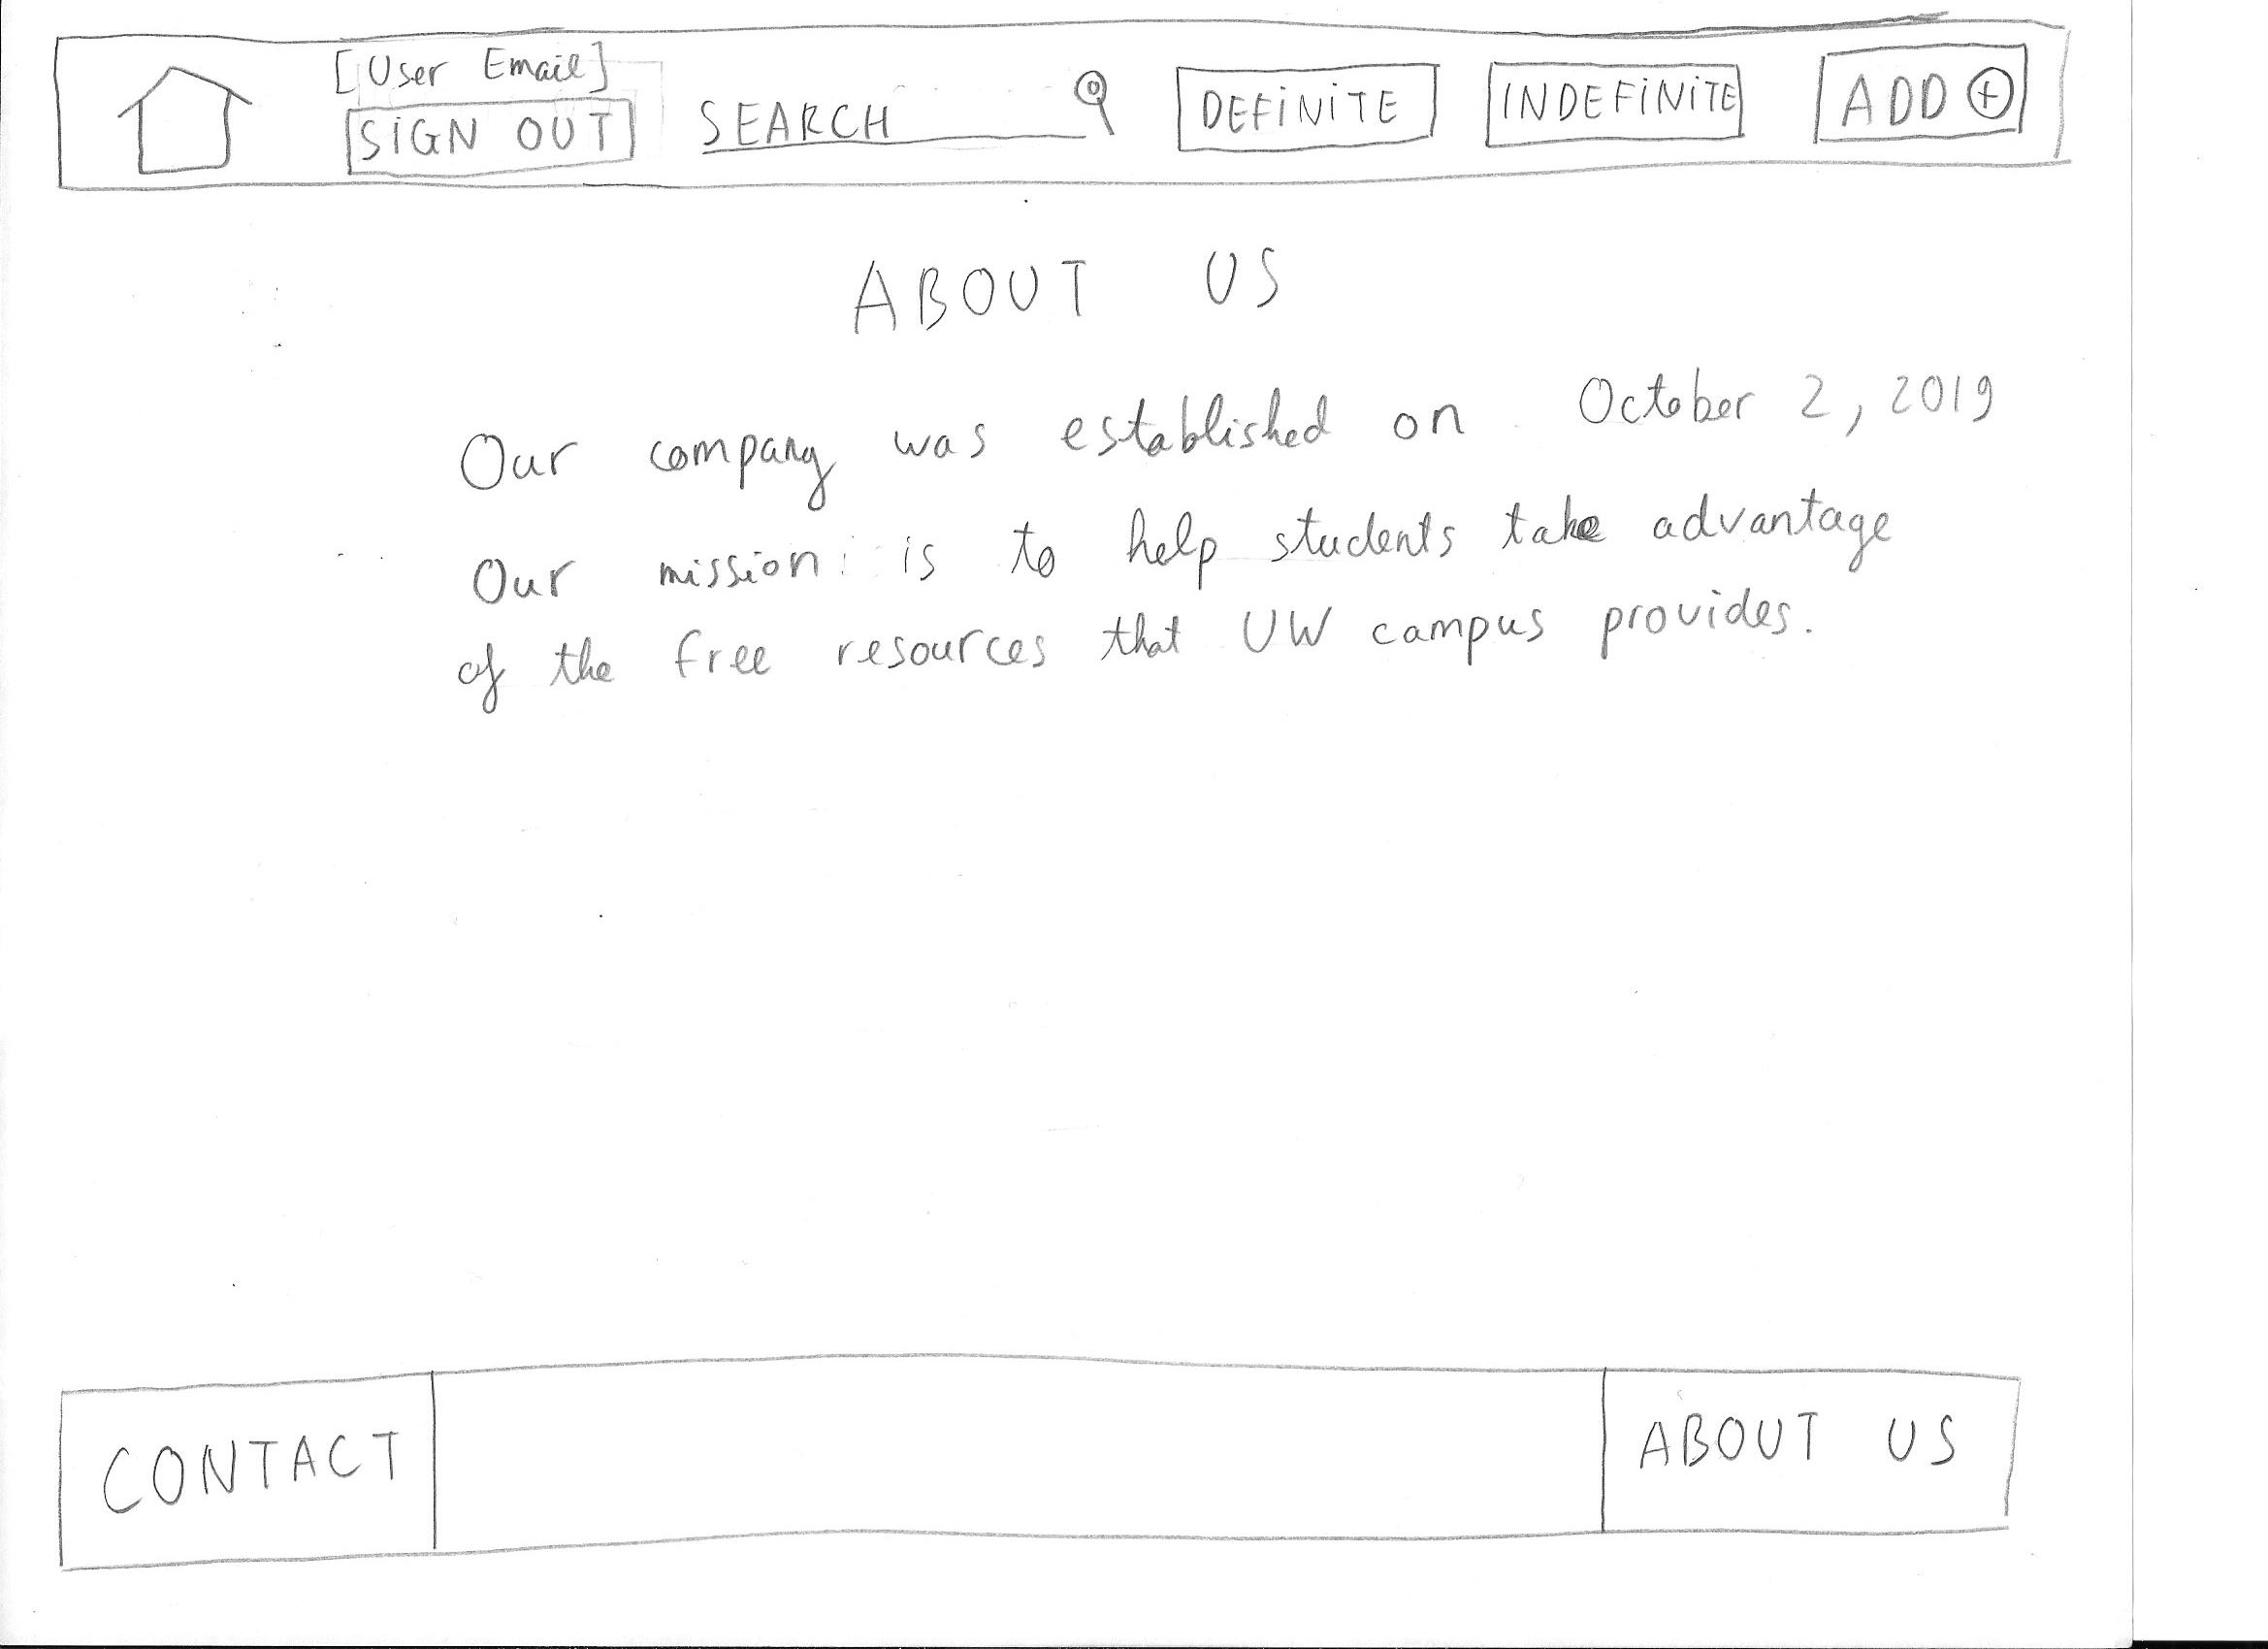 [User Email]
SIGN OUT
SEARCH
DEFINITE
INDEFINITE
ADD +
ABOUT US
Our company was established on October 2, 2019
Our mission is to help students take advantage
of the free resources that UW campus provides.
CONTACT
ABOUT US